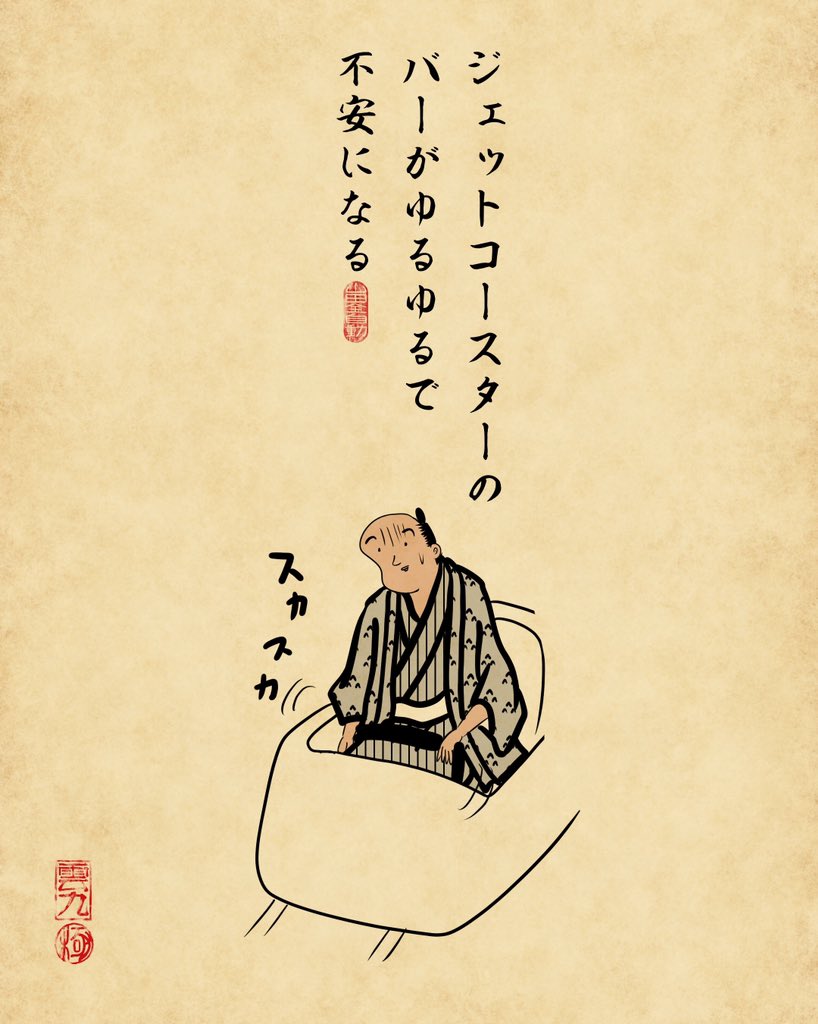 ジェットコースターの
バーがゆるゆるで
不安になる
スカスカ